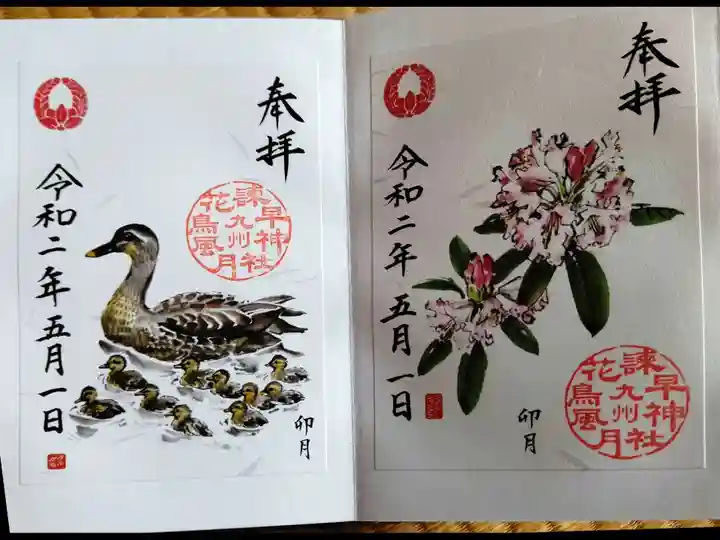 奉拝
諫早神社
九州
花鳥風月
令和二年五月一日
卯月
奉拝
令和二年五月一日
諫早神社
九州
花鳥風月
卯月